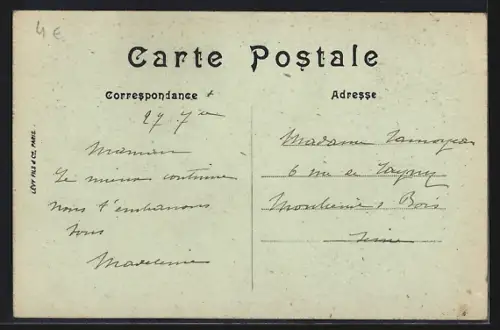 4 €
Carte Postale
Correspondance
Adresse
LÉVY FILS & Cie, PARIS.
27 7
Maman
Le mieux continue
nous t'embrassons
tous
Madeleine
Madame
6 rue de
Bois
Seine